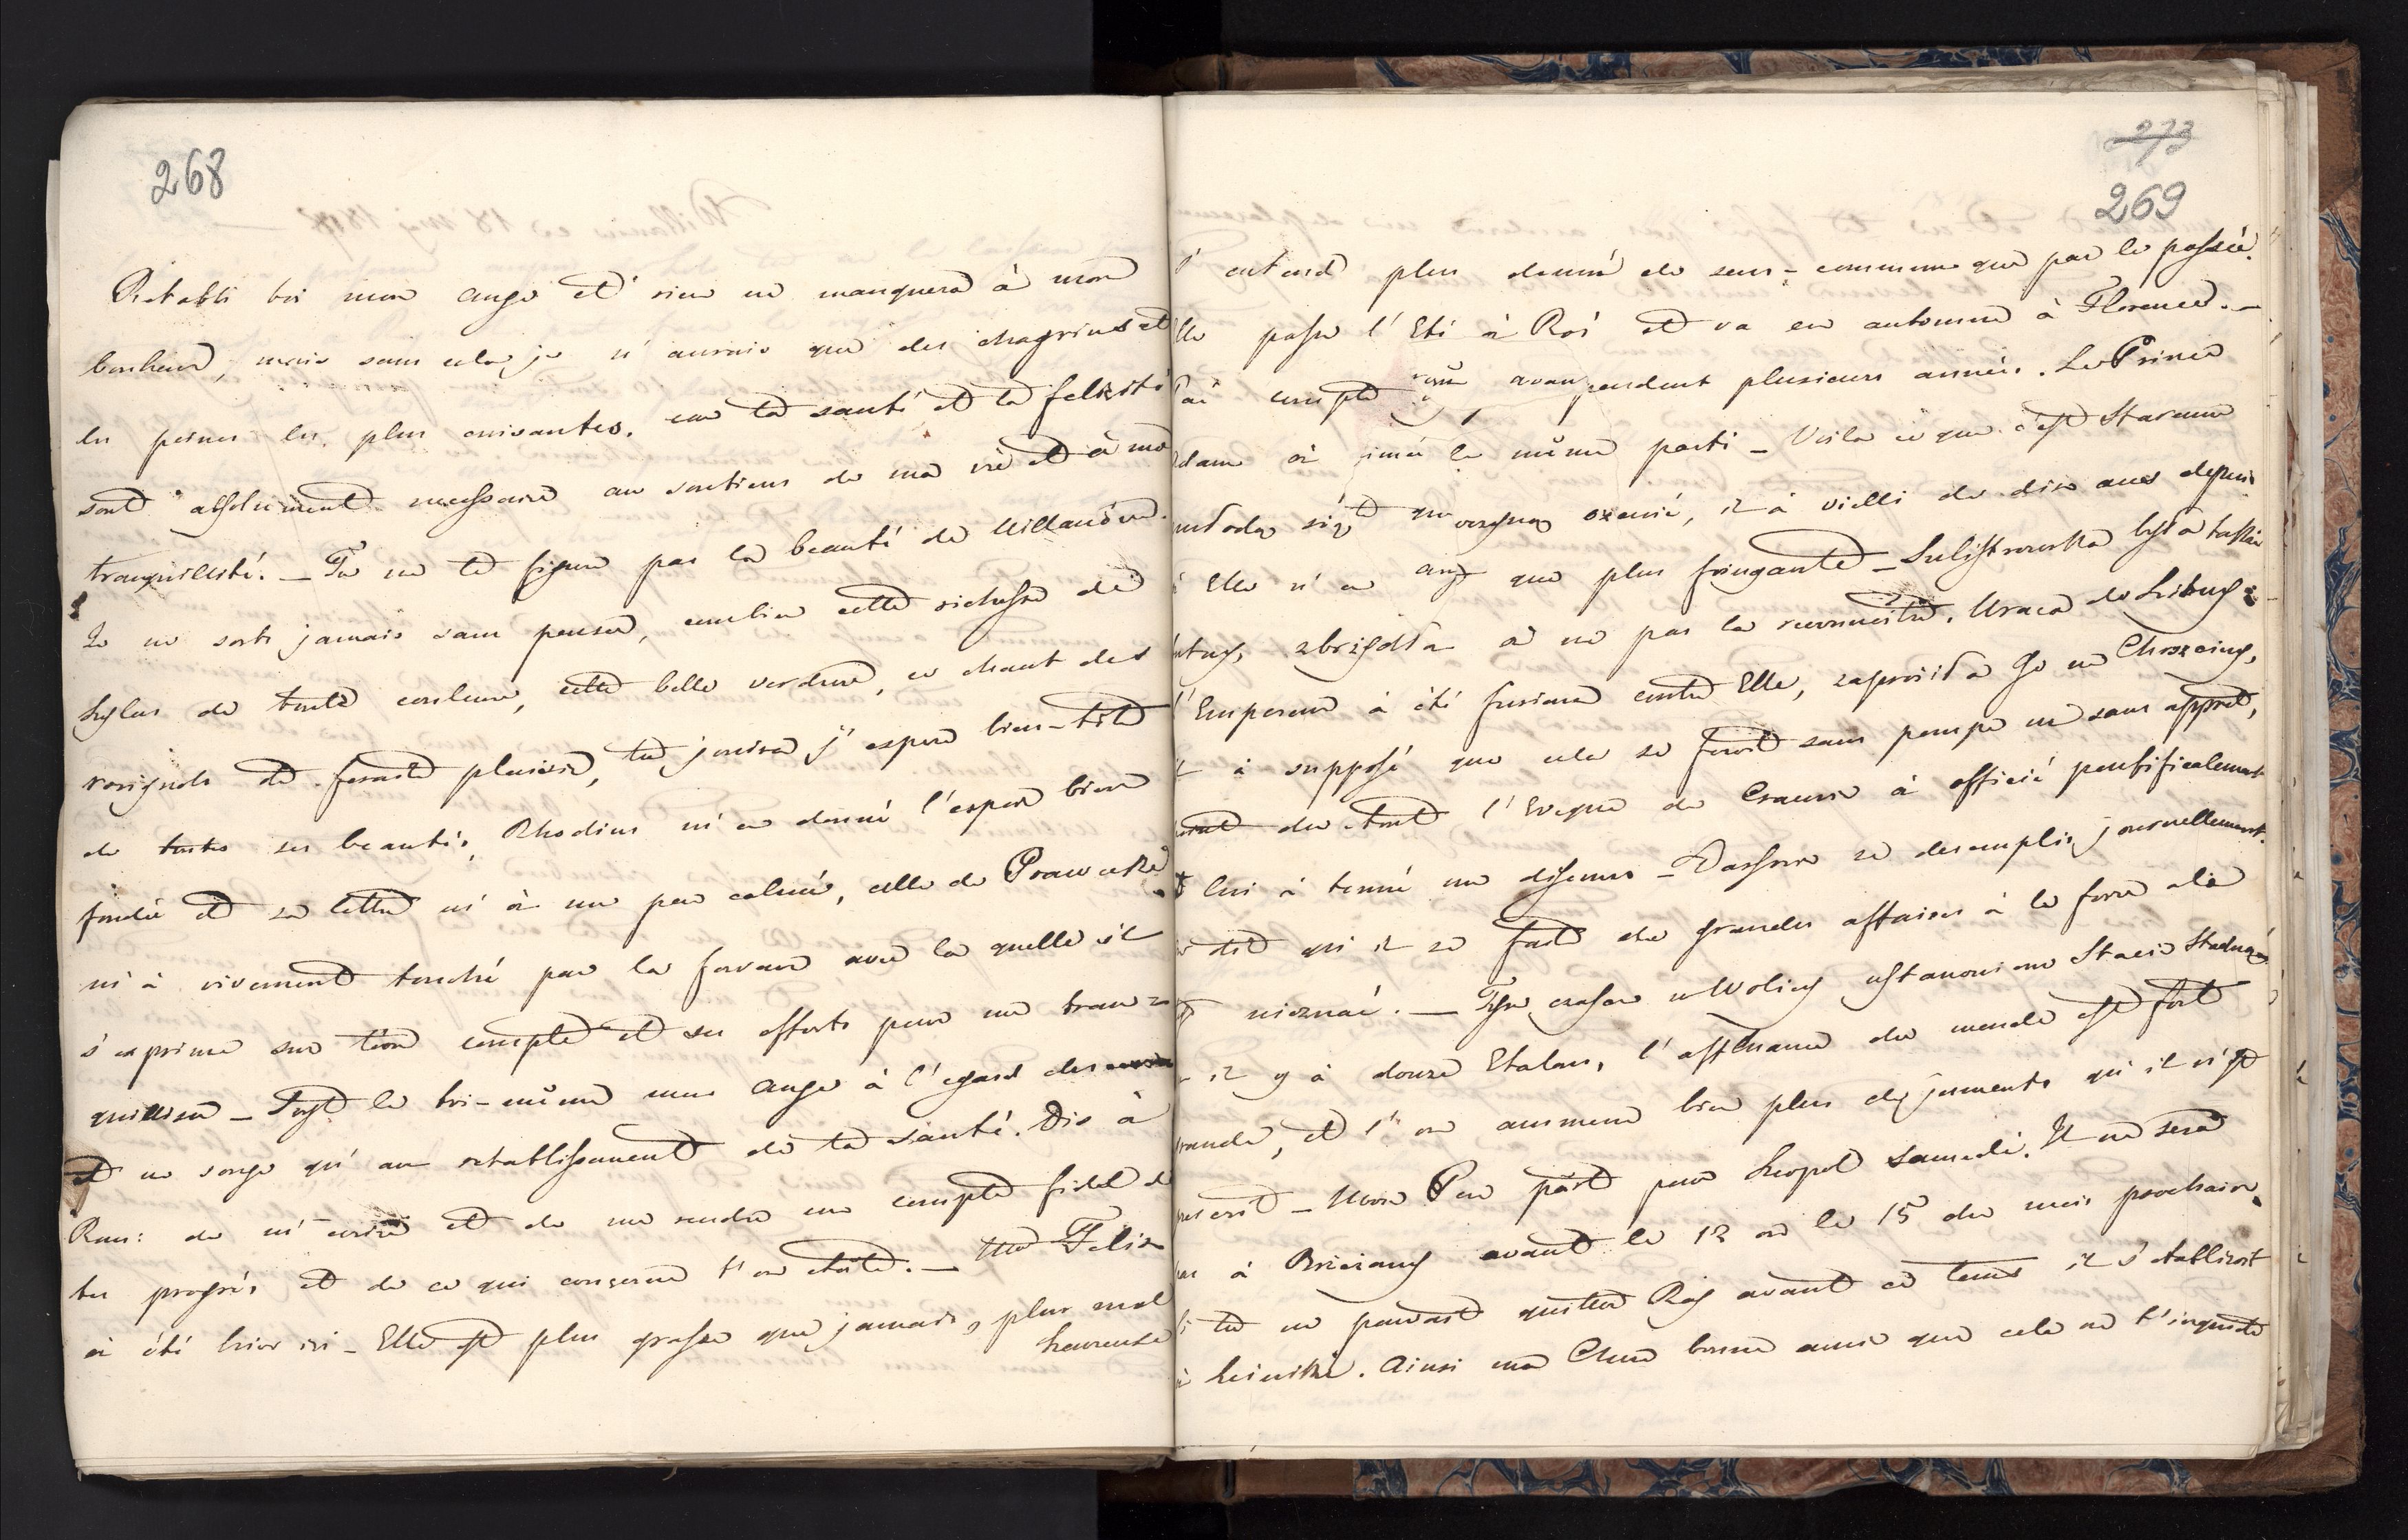 268
Retabli toi mon ange et rien ne manquera à mon
bonheur, mais sans cela je n'aurais que des chagrins et
les peines les plus cuisantes. car ta santé et ta felicité
sont absolument necessaire au soutiens de ma vie et à ma
tranquillité. — Tu ne te figure pas la beauté de Willanów.
Je ne sorts jamais sans penser, combien cette richesse de
lylas de toute couleur, cette belle verdure, ce chant des
rosignols te feroit plaisir, tu jouira j'espere bien-tôt
de toutes ses beautés, Rhodius m'en donné l'espoir bien
fondée et sa lettre m'a un peu calmé, celle de
m'a vivement touché par la ferveur avec la quelle il
s'exprime sur ton compte et ses efforts pour me tran=
quiliser — soyt le toi-même mon ange à l'egard des
et ne songe qu'au retablissement de ta santé. Dis à
Rous: de m'ecrire et de me rendre un compte fidel de
tes progrés et de ce qui conserne t'on etat. — Felix
à été hier ici — Elle est plus grasse que jamais, plus mal
heureuse
273
269
entend plus denué de sens-commun que par le passée.
passe l'Eté à Roś et va en automne à Florence. —
compte avan pendent plusieurs années. Le Prince
Adam à aimée le même parti — Voila ce que c'est Staremu
się oženić, il à vielli de dix ans depuis
Elle n'en que plus fringante — Sulistrowska była takže
zbrzydła a ne pas la reconnoitre.
l'Empereur à été furieux contre Elle, zaprosiła Go na Chrzciny,
il à supposé que cela se feroit sans pompe ne sans appret,
du tout l'Eveque de à officié pontificalement
et lui à tenné un discours — Varsovie se desemplis journellement.
dit qu'il se fait de grandes affaires à la foire
nieznać. — Tym czasem w Wolicy ustanowiono Stacie Stadnych
il y à douze Etalons, l'affluance du monde est fort
grande, et l'on ammene bien plus de juments qu'il n'est
prescrit — Mon Pere pärt pour Leopol samedi. Il ne sera
pas à Brzezany avant le 12 ou le 15 du mois prochain.
si tu ne pouvait quitter Roś avant ce tems il s'etablirait
à . Ainsi ma Chere bonne amie que cela ne t'inquiete